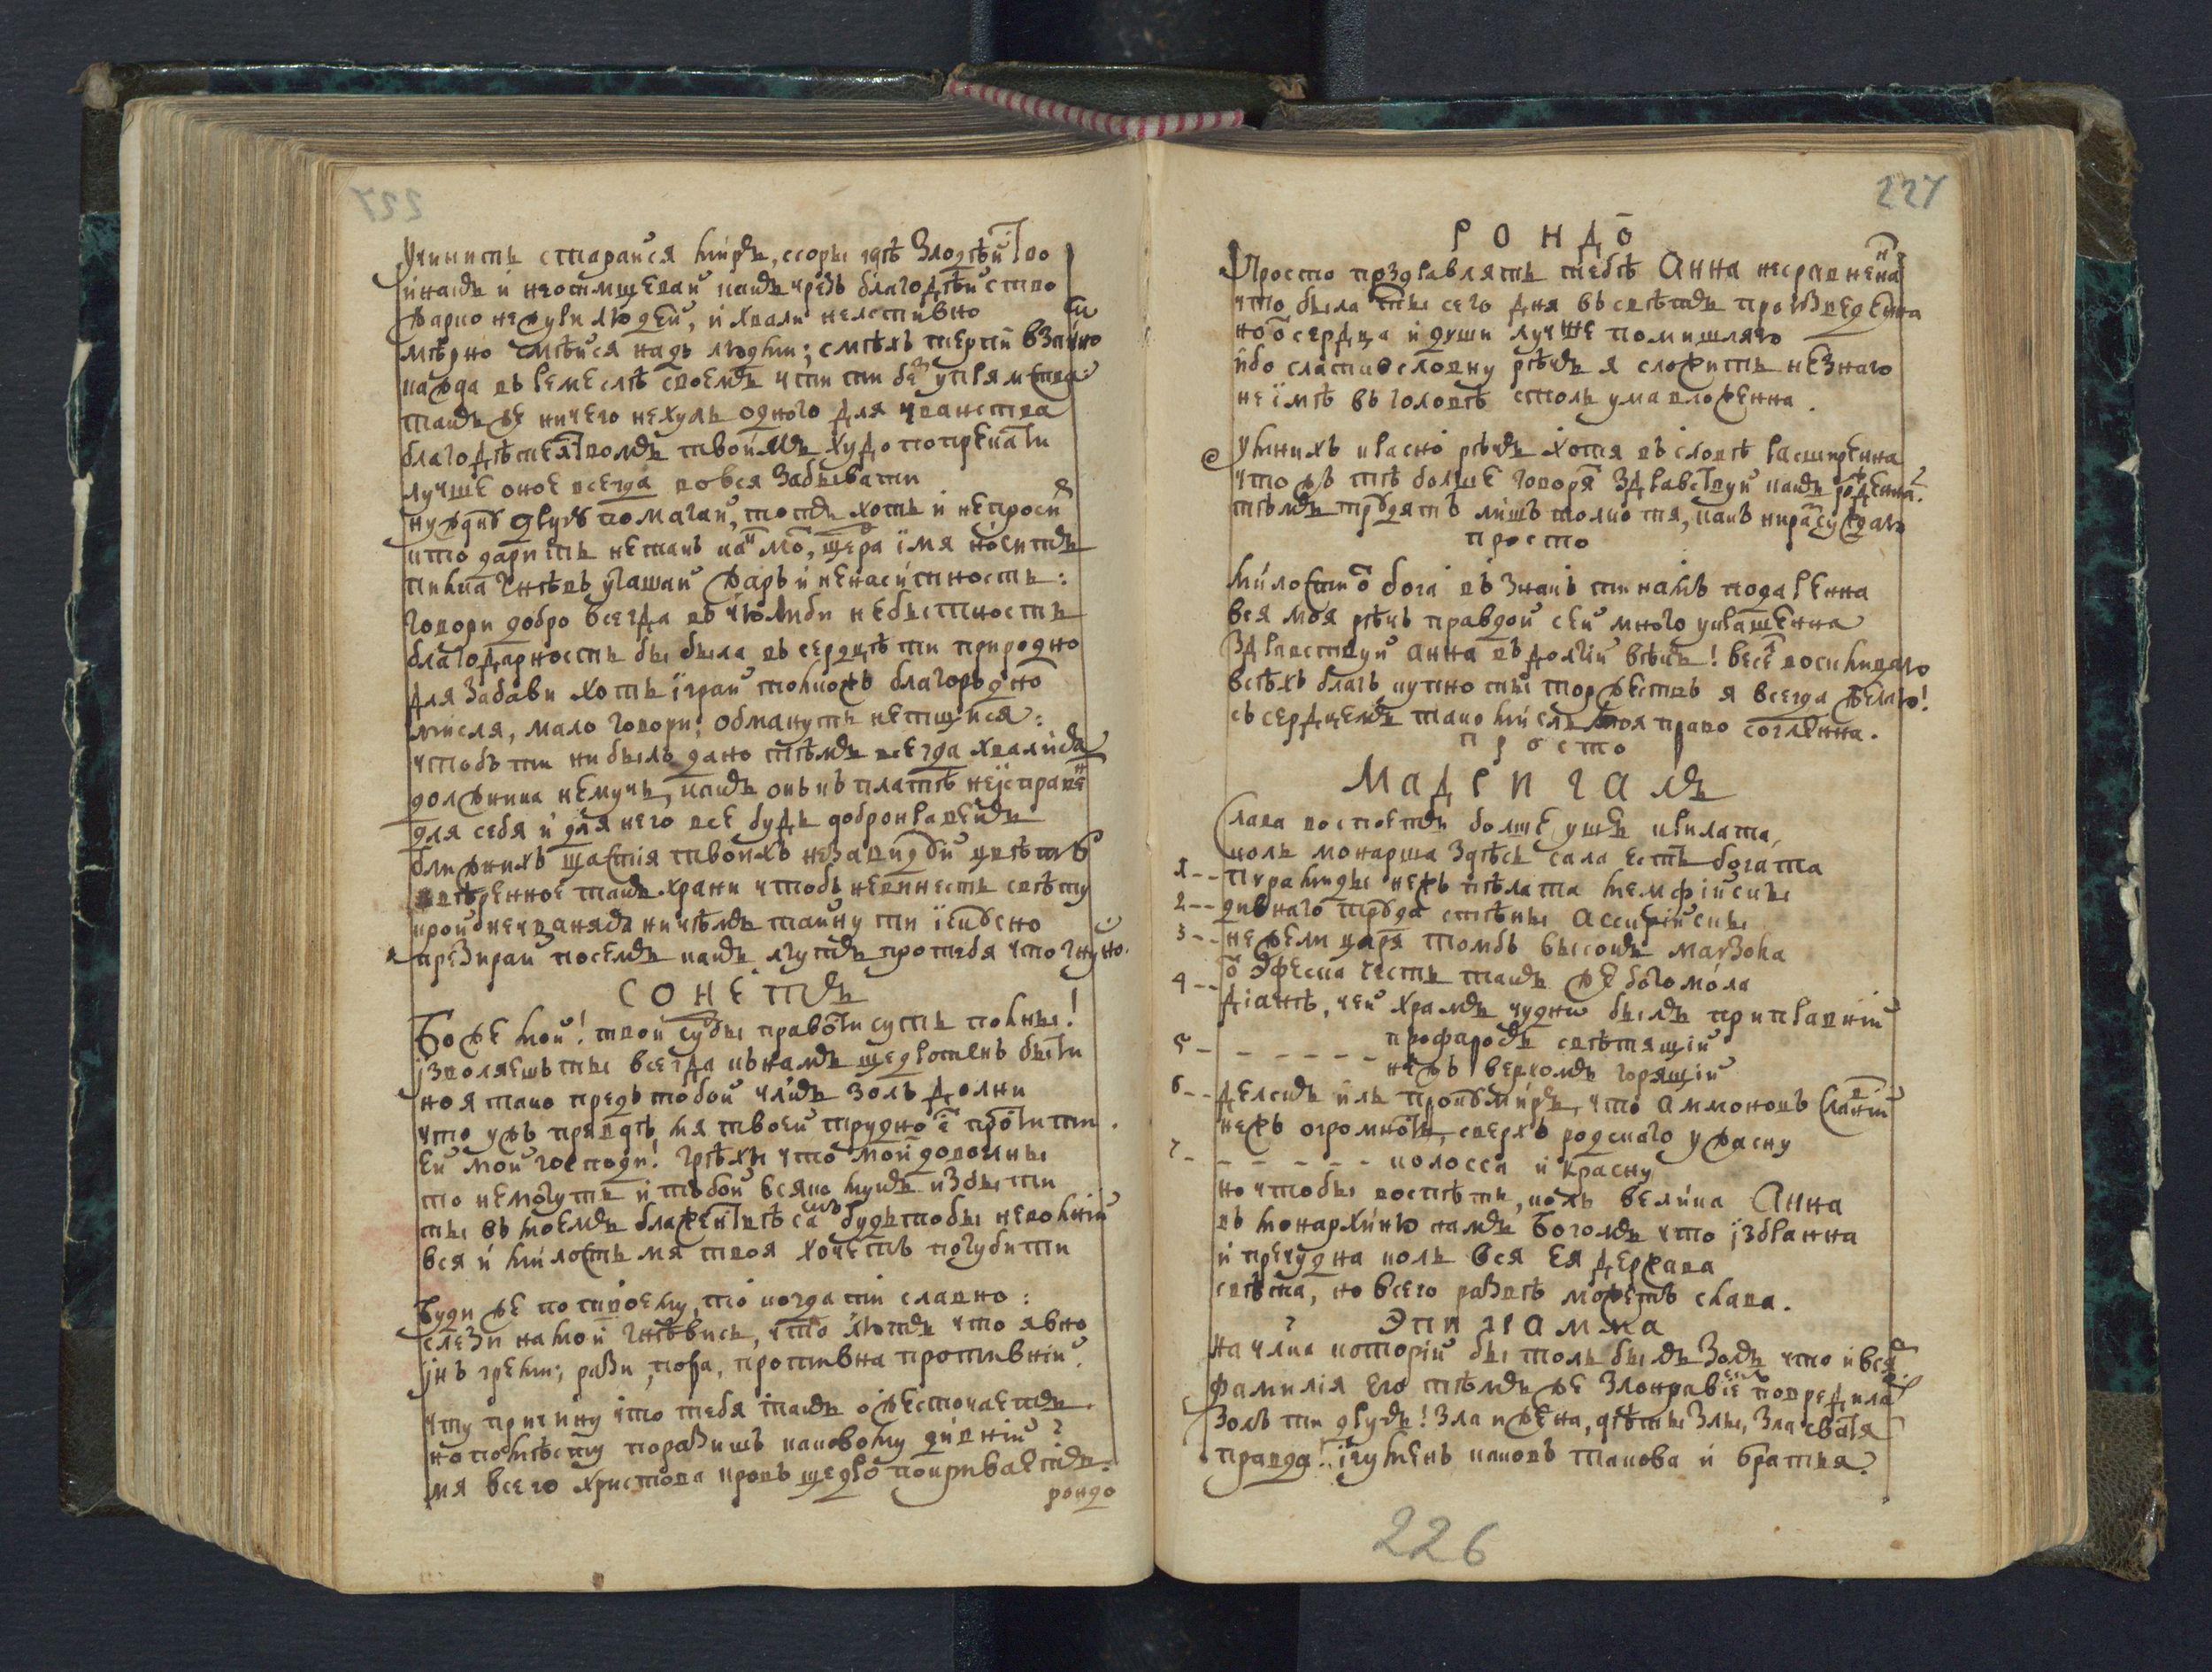 Учинить старайся миръ, ссоры гдѣ злодѣйство
инакъ и неотмщевай какъ чрезъ благодѣйство
жарко нежури людей, и хвали нелстивно
мѣрно смѣйся надъ людми; смѣхъ терпи взаимно
кажда въ ремеслѣ своемъ чти ти без упрямства:
такъ же ничего нехуль одного для чванства
благодѣтелствомъ твоимъ худо попрекати
лучше оное всегда вовся забывати
нуждну другу помагай, тотъ хоть и непроситъ
кто даритъ нетакъ какъ мо, щедра имя носитъ
пилка гнѣвъ угашай жаръ и ненаситность:
говори добро всегда въ комлиби небытность
благодарность бы была въ сердцѣ ти природно
для забави хоть играй толкожъ благородно
мисля, мало говори; обмануть нетщися:
чтобъ ти нибыло дано тѣмъ всегда хвалися
должника немучь, какъ онъ къ платѣ неисправенъ
для себя и для него все будь добронравенъ
ближнихъ щастія твоихъ незавидуй цвѣту
ввѣренное такъ храни чтобъ невинесть свѣту
кройсь нечванясь ничѣмъ тайну ти искусно
презирай посемъ какъ лгутъ про тебя что гнусно.
СОНЕТЪ
Боже мой! твои судбы правости суть полны!
изволяешъ ты всегда къ намъ щедротенъ быти
но я тако предъ тобой члкъ золъ долни
что ужъ правдѣ мя твоей трудно е простити.
Ей мой господи! грѣхи что мои доволны
то немогутъ и тобой всяко мукъ избыти
ты въ моемъ блаженствѣ самъ будьтобы неволній
вся и милость мя твоя хочетъ погубити
Буди же потвоему, то когда ти славно:
слезы на мои гнѣвись, что льютъ что явно
инъ греми; рази, пора, противна противній.
Чту причину что тебя такъ ожесточаетъ.
но помѣсту поразишъ каковому дивній?
мя всего христова кровь щедро покрываетъ.
рондо
227
РОНДО
Просто поздравлять тебѣ Анна несравненна
что была ты сего дня въ свѣтъ произведенна
но о сердца и души лучше помишляю
ибо сластиословну рѣчь я сложить незнаю
неимѣ въ головѣ столь ума вложенна.
Умнихъ красно рѣчь хотя въ словѣ расширенна
что жъ тѣ болше говоря здравствуй какъ рожденна.
тѣмъ трудятъ лишъ толко тя, какъ нирасуждаю
просто
Милостію бога въ знакъ ти намъ подаренна
вся моя рѣчь правдой сей много украшенна
Здравствуй анна въ долгій вѣкъ! весе восклицаю
всѣхъ благъ купно ты торжествъ я всегда желаю!
съ сердцемъ тако мисль моя право согленна.
просто
МАДРИГАЛЪ
Слава воспоетъ болше ужъ крилата,
коль монарша здѣсь сала есть богата
1-- Пурамиды нежъ пѣлата мемфійски
2-- дивнаго труда стѣны Ассирійски
3-- нежели царя томбъ высокъ мавзока
о Эфеска честь такъ же богомола
4-- Діанѣ, чей храмъ чудно былъ приправній
5 - - - - - - - профаросъ свѣтящій
нежъ верхомъ горящій
6-- Делскъ иль прокумиръ, что Аммоновъ славній
нежъ огромность, сверхъ родскаго ужасну
7- - - - - - - колосса и красну
но чтобы воспѣть, коль велика Анна
въ монархиню намъ Богомъ что избранна
и пречудна коль вся ея держава
свѣта, но всего развѣ можетъ слава.
Эпиграмма
На члка которій бы толь былъ золъ что и вся
Фамилія его тѣмъ же злонравіемъ повредила
Золъ ти другъ! зла и жена, дѣты злы, зла сватья
правда! игуменъ каковъ такова и братья.
226